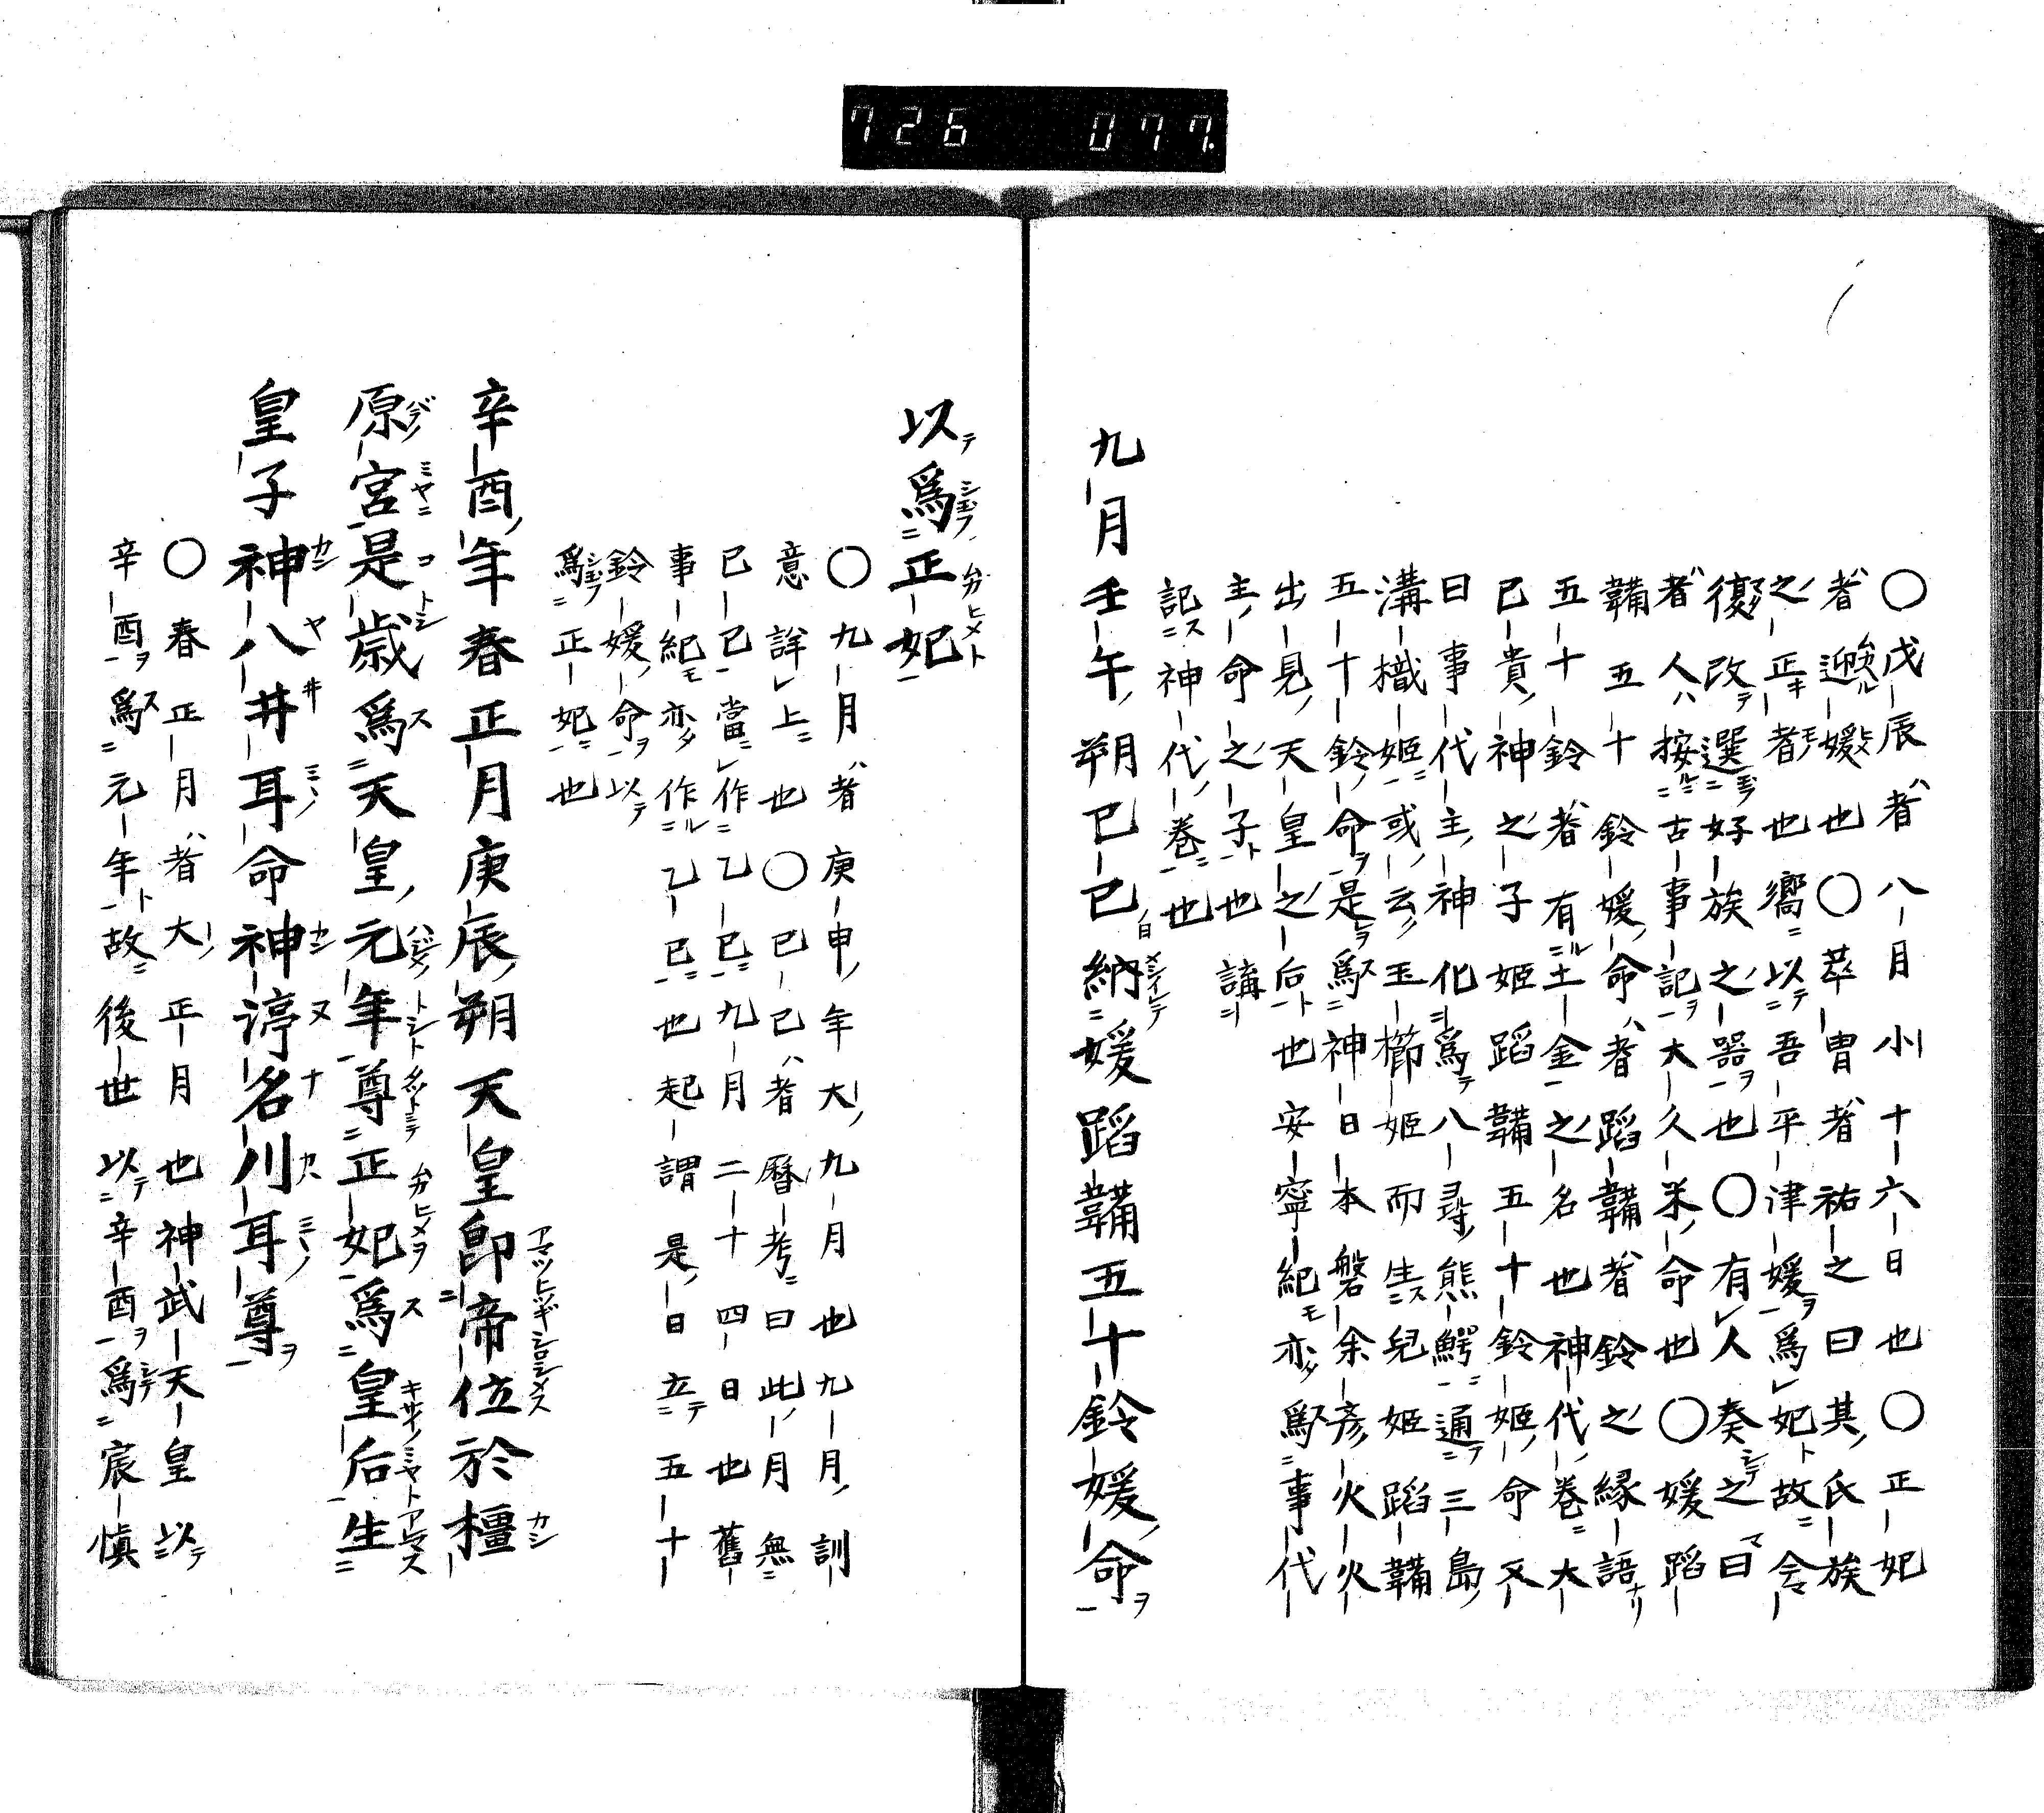 726 077.
〇戊辰者八月小十六日也〇正妃
者迎媛也〇萃胄者祐之曰其氏族
之正者也嚮以吾平津媛爲妃故令
復改選好族之器也〇有人奏之曰
者人按古事記大久米命也〇媛蹈
韛五十鈴媛命者蹈韛者鈴之縁語
五十鈴者有土金之名也神代卷大
已貴神之子姫蹈韛五十鈴姫命又
曰事代主神化爲八尋熊鰐通三島
溝樴姫或云玉櫛姫而生兒姫蹈韛
五十鈴命是爲神日本磐余彦火火
出見天皇之后也安寧紀亦爲事代
主命之子也講
記神代卷也
九月壬午朔已已納媛蹈韛五十鈴媛命
以爲正妃
〇九月者庚申年大九月也九月訓
意詳上也〇已已者曆考曰此月無
已已當作乙已九月二十四日也舊
事紀亦作乙已也起謂是日立五十
鈴媛命以
爲正妃也
辛酉年春正月庚辰朔天皇即帝位於橿
原宮是歳爲天皇元年尊正妃爲皇后生
皇子神八井耳命神渟名川耳尊
〇春正月者大正月也神武天皇以
辛酉爲元年故後世以辛酉爲宸慎